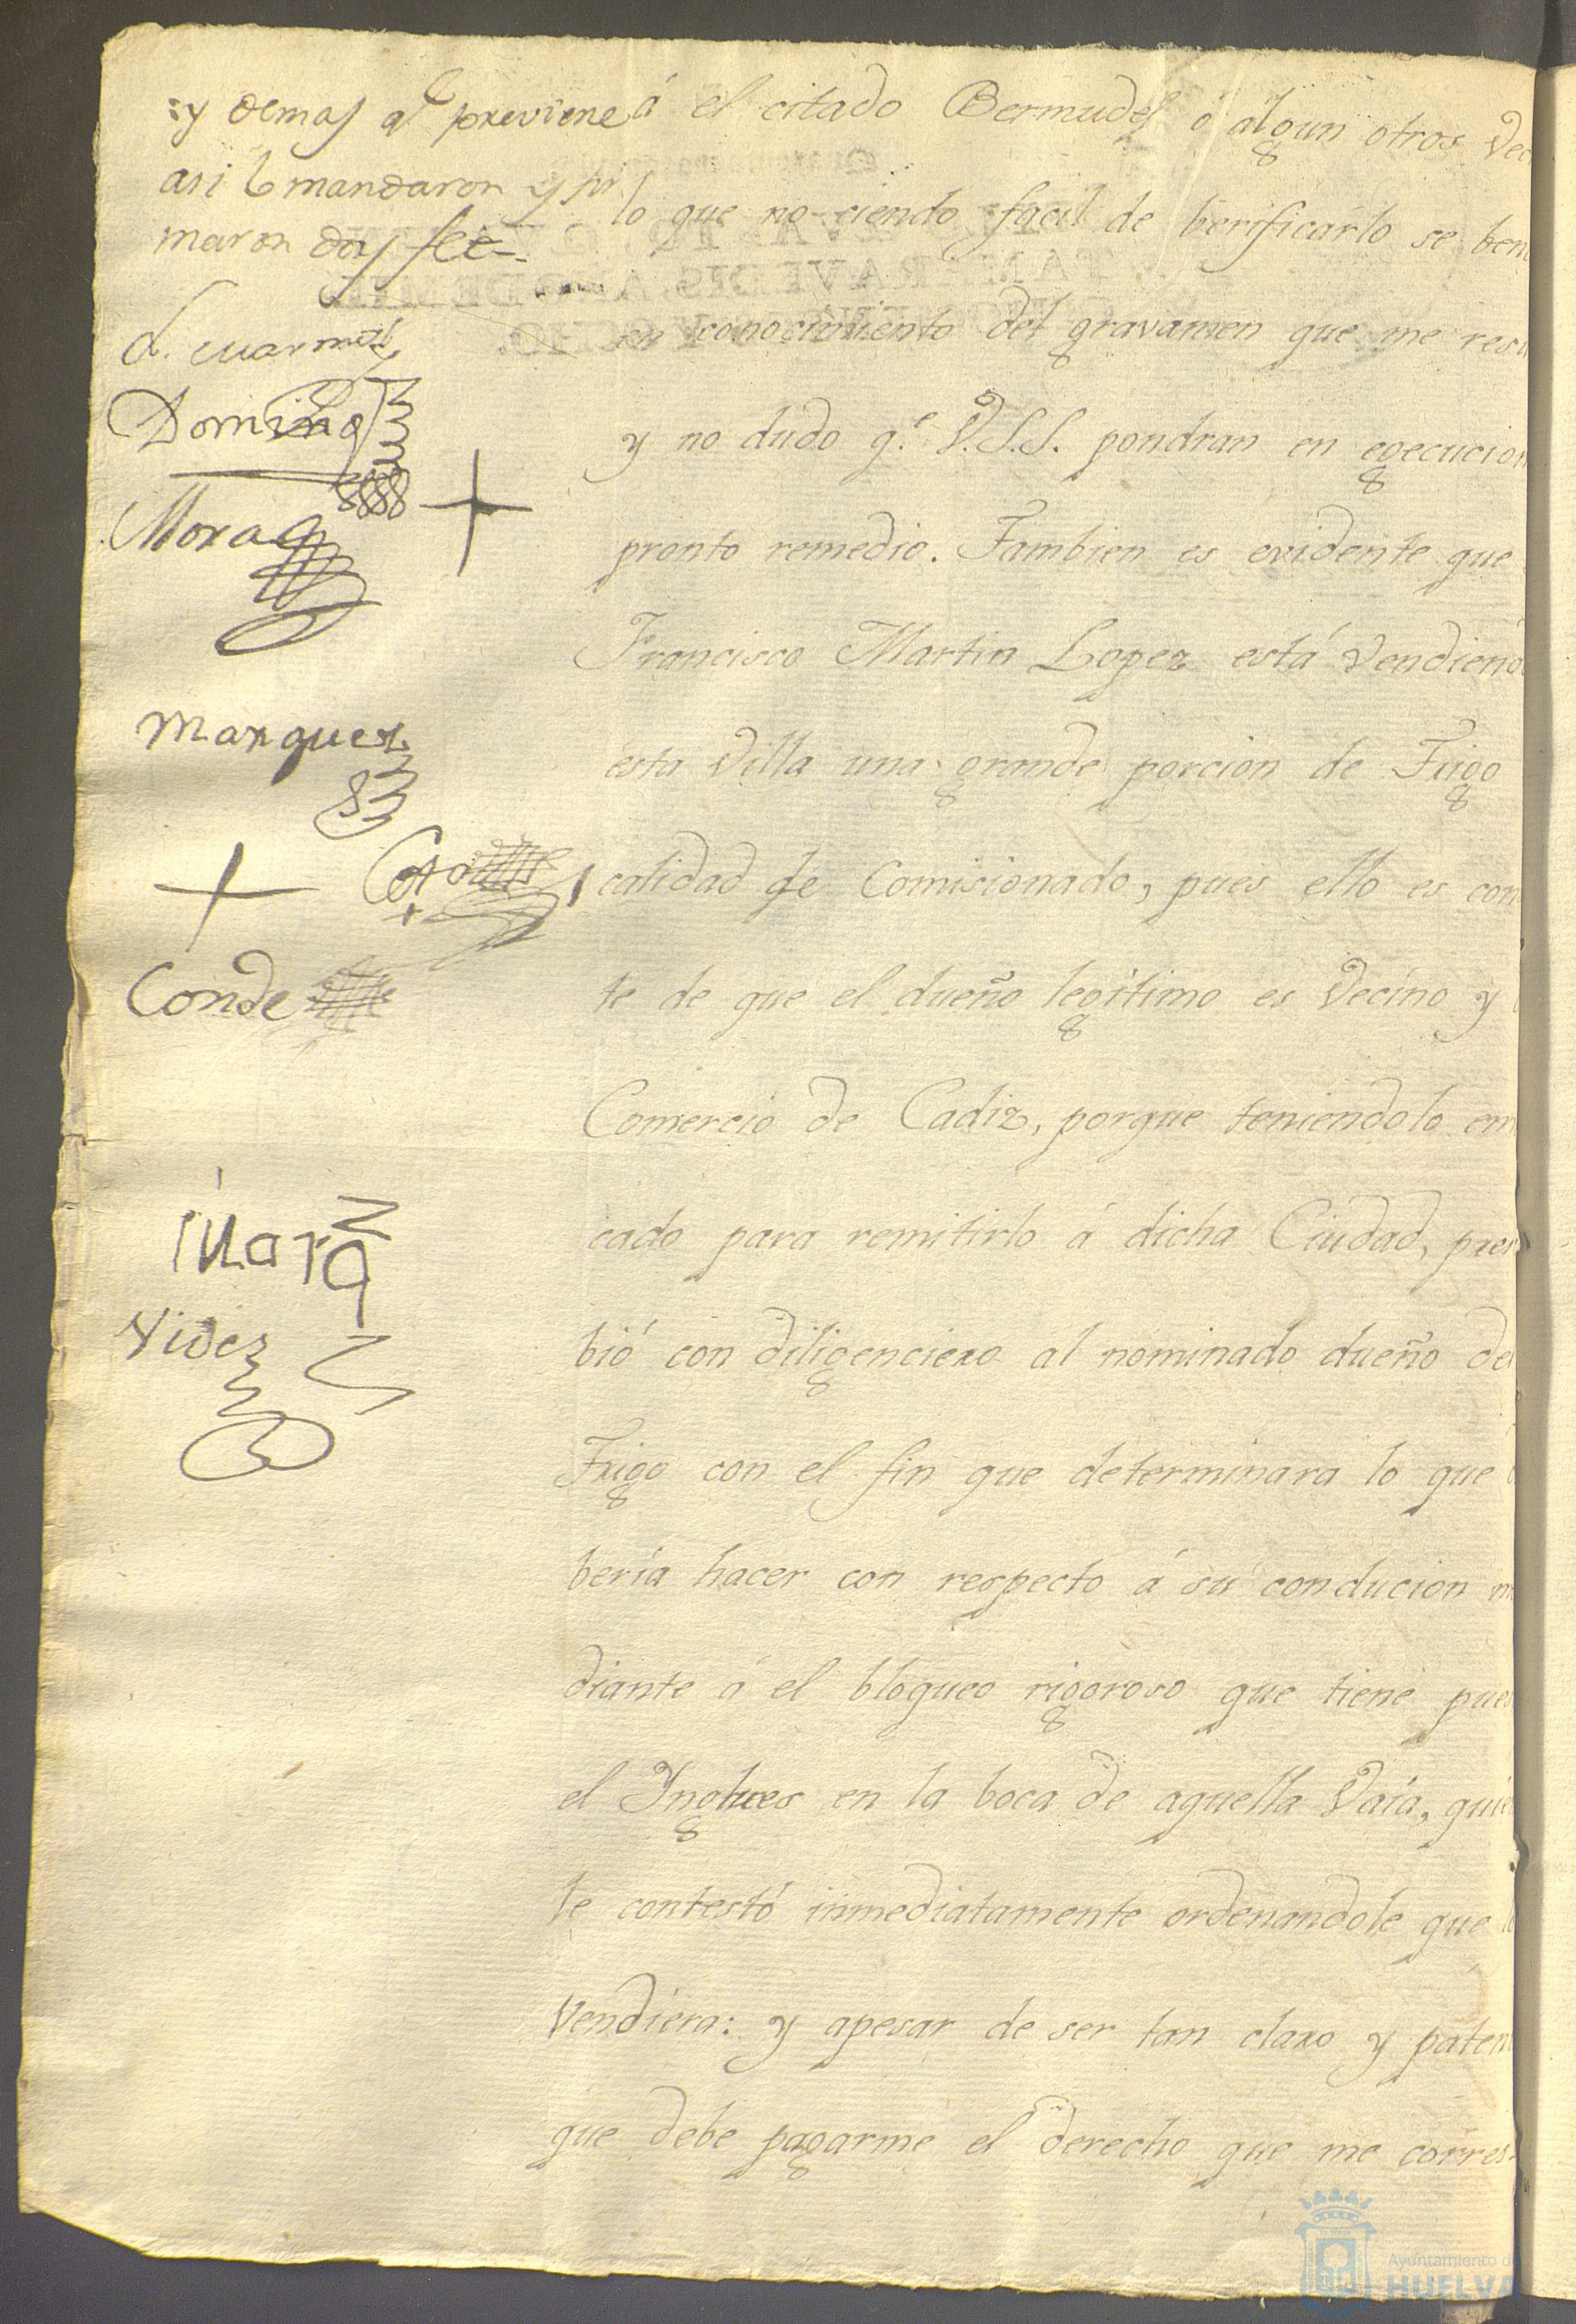 :y demas q.e previene
asi lo mandaron y fir
maron doy fee=
Domingo
Mora
Marquez
Conde
Videz
á el citado Bermudes ó algun otros Vec
lo que no ciendo facil de berificarlo se ben
en conocimiento del gravamen que me resu
y no dudo q.e V.S.S. pondran en egecucion
pronto remedio. Tambien es evidente que
Francisco Martin Lopez está vendiend
esta Villa una grande porcion de Trigo
calidad de Comisionado, pues ello es con
te de que el dueño legítimo es Vecino y
Comercio de Cadiz, porque teniendolo em
cado para remitirlo á dicha Ciudad,
bió con diligenciero al nominado dueño de
Trigo con el fin que determinara lo que
bería hacer con respecto á su conducion m
diante á el bloqueo rigoroso que tiene pues
el Yngles en la boca de aquella Vaía, quie
le contestó inmediatamente ordenandole que
Vendiera: y apesar de ser tan claro y paten
que debe pagarme el derecho que me corres-
Ayuntamiento de
HUELVA